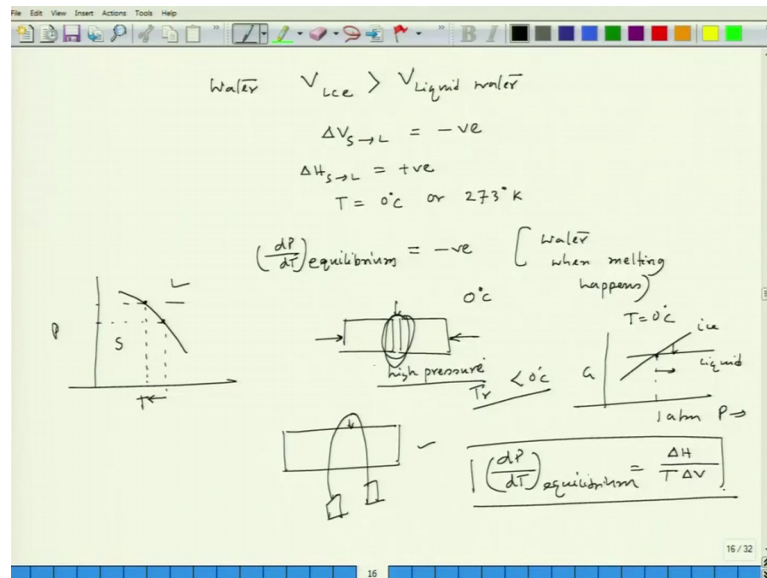 File Edit View Insert Actions Tools Help
Water V_Ice > V_Liquid water
ΔV_S→L = -ve
ΔH_S→L = +ve
T = 0°C or 273°K
(dP/dT)_equilibrium = -ve [Water when melting happens]
P
S
L
T←
0°C
high pressure
Tr < 0°C
T = 0°C
ice
liquid
G
1 atm P→
(dP/dT)_equilibrium = ΔH/TΔV
16 / 32
16